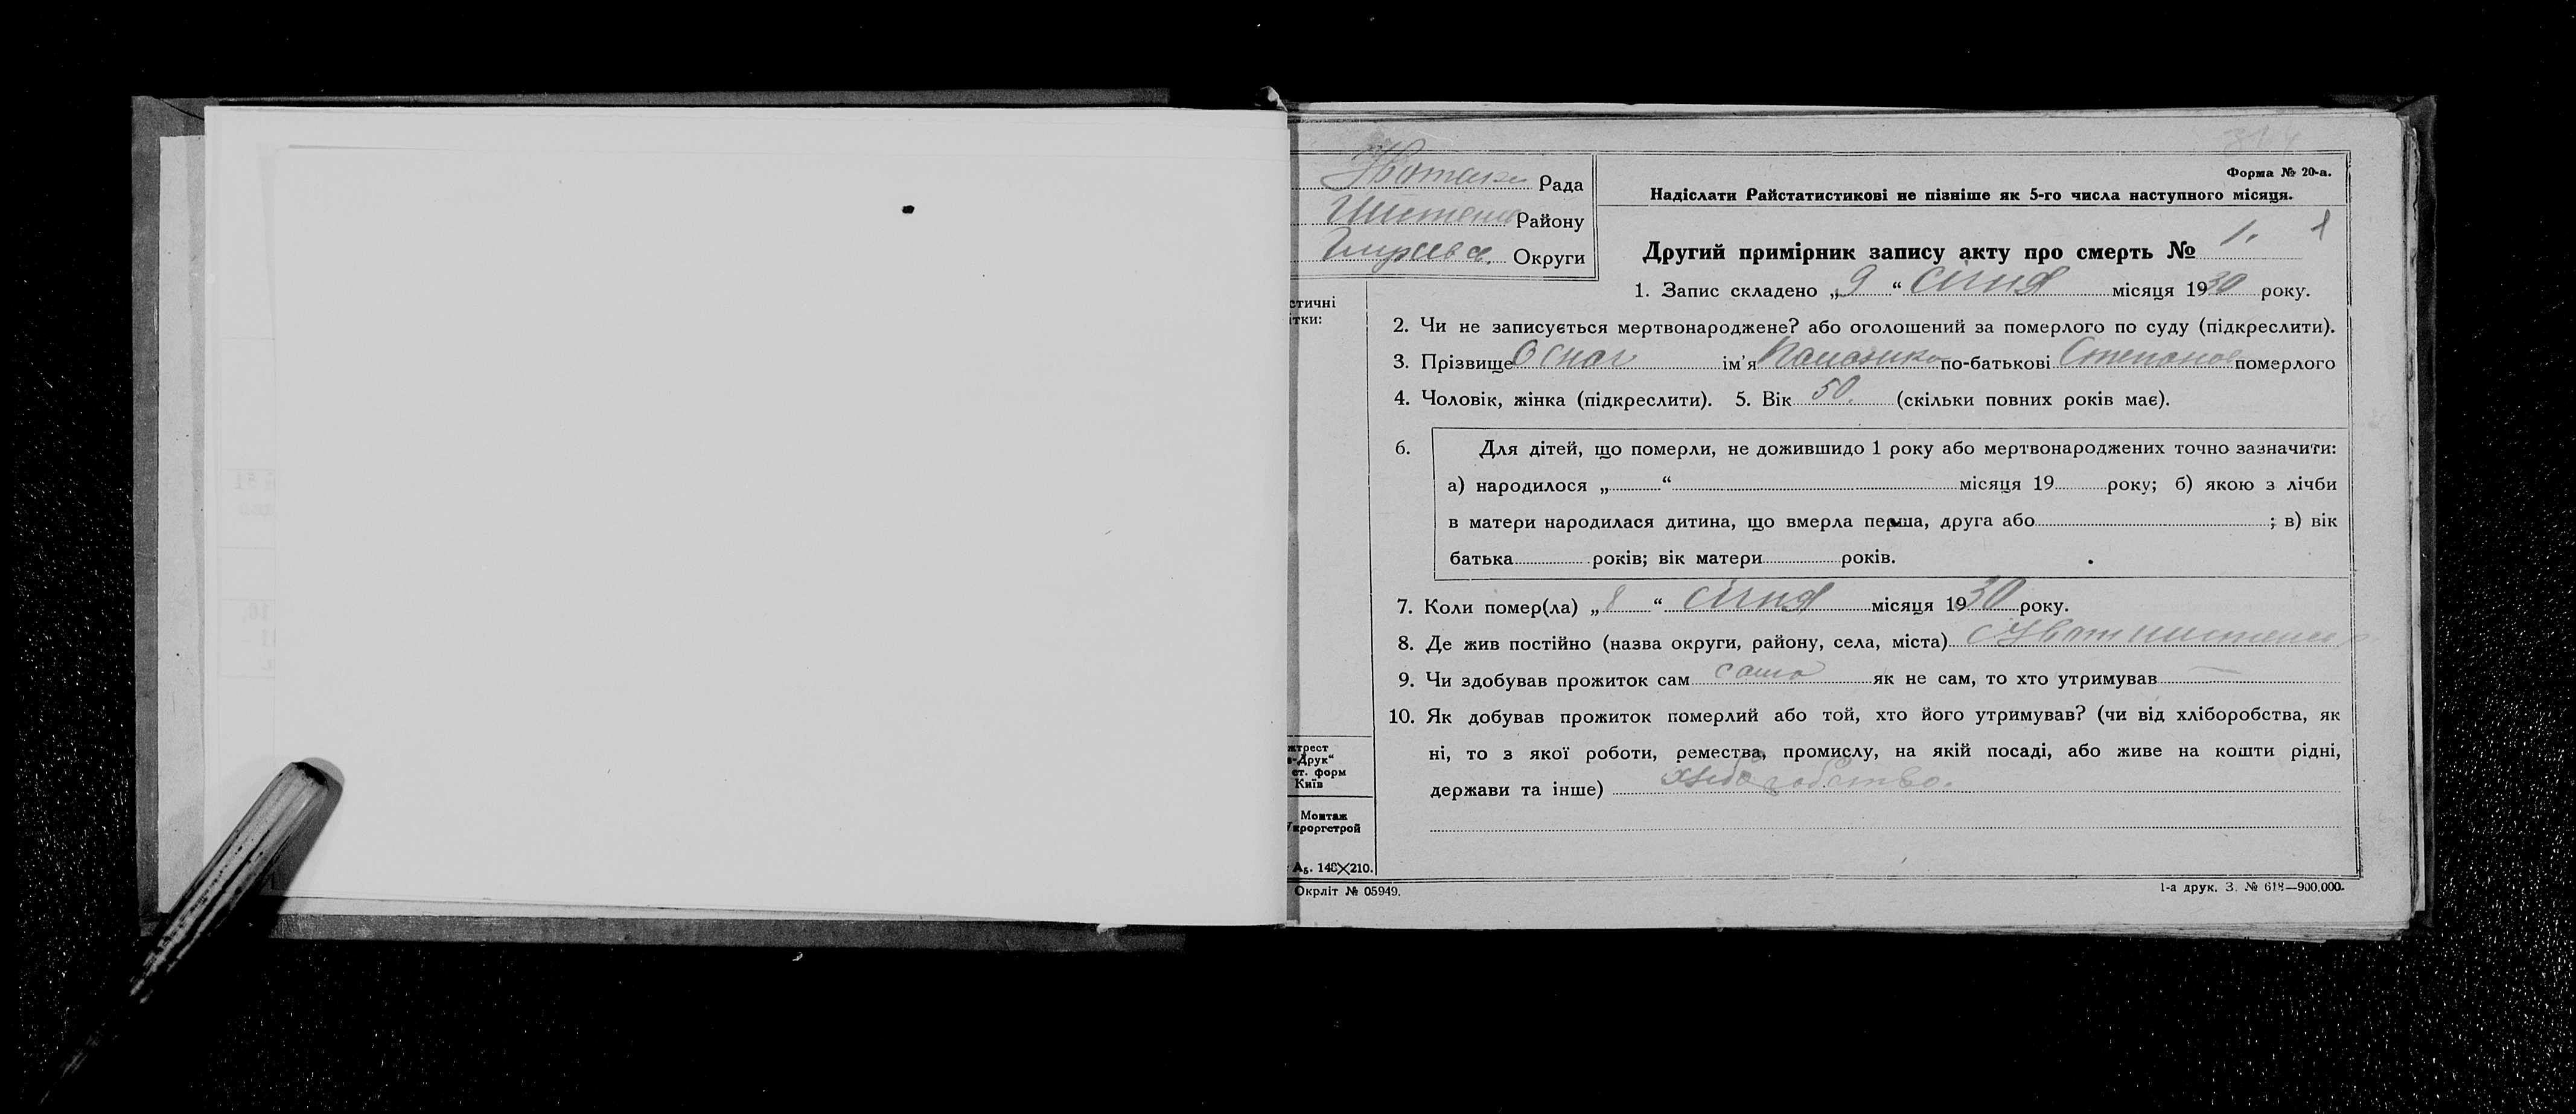 314
Рада
Району
Округи
Форма № 20-а.
Надіслати Райстатистикові не пізніше як 5-го числа наступного місяця.
Другий примірник запису акту про смерть № 1. 1
1. Запис складено „9“ січня місяця 1930 року.
2. Чи не записується мертвонароджене? або оголошений за померлого по суду (підкреслити).
3. Прізвище ім'я по-батькові Степанов померлого
4. Чоловік, жінка (підкреслити). 5. Вік 50. (скільки повних років має).
6. Для дітей, що померли, не дожившидо 1 року або мертвонароджених точно зазначити:
а) народилося „ “ місяця 19 року; б) якою з лічби
в матери народилася дитина, що вмерла перша, друга або ; в) вік
батька років; вік матери років.
7. Коли помер(ла) „8“ січня місяця 1930 року.
8. Де жив постійно (назва округи, району, села, міста)
9. Чи здобував прожиток сам сама як не сам, то хто утримував —
10. Як добував прожиток померлий або той, хто його утримував? (чи від хліборобства, як
ні, то з якої роботи, ремества, промислу, на якій посаді, або живе на кошти рідні,
держави та інше) хліборобство.
стичні
ітки:
жтрест
-Друк“
ст. форм
Київ
Монтаж
Укроргстрой
А5. 148X210.
Окрліт № 05949.
1-а друк. З. № 618—900.000.